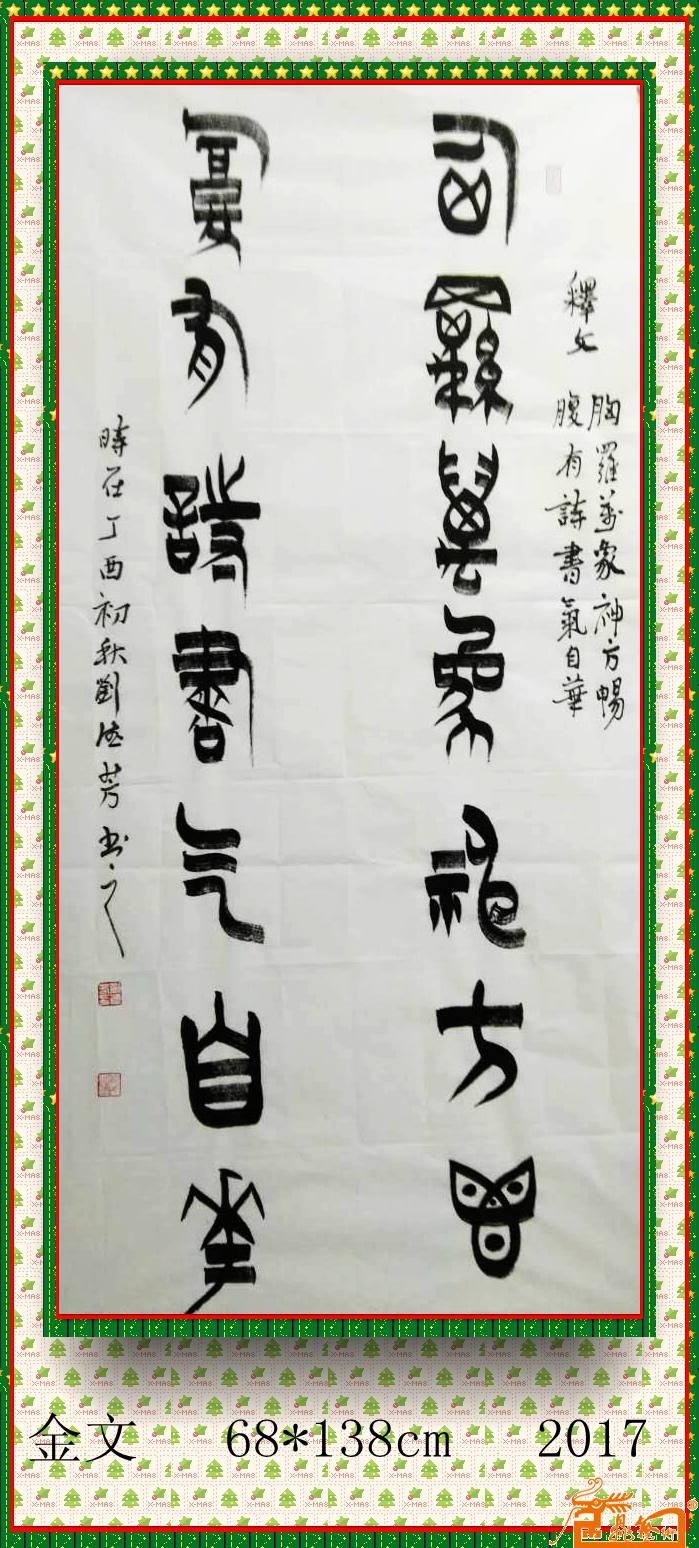 釋文
胸羅萬象神方暢
腹有詩書氣自華
胸羅萬象神方暢
腹有詩書气自華
時在丁酉初秋劉芳书之
金文 68*138cm 2017
X-MAS